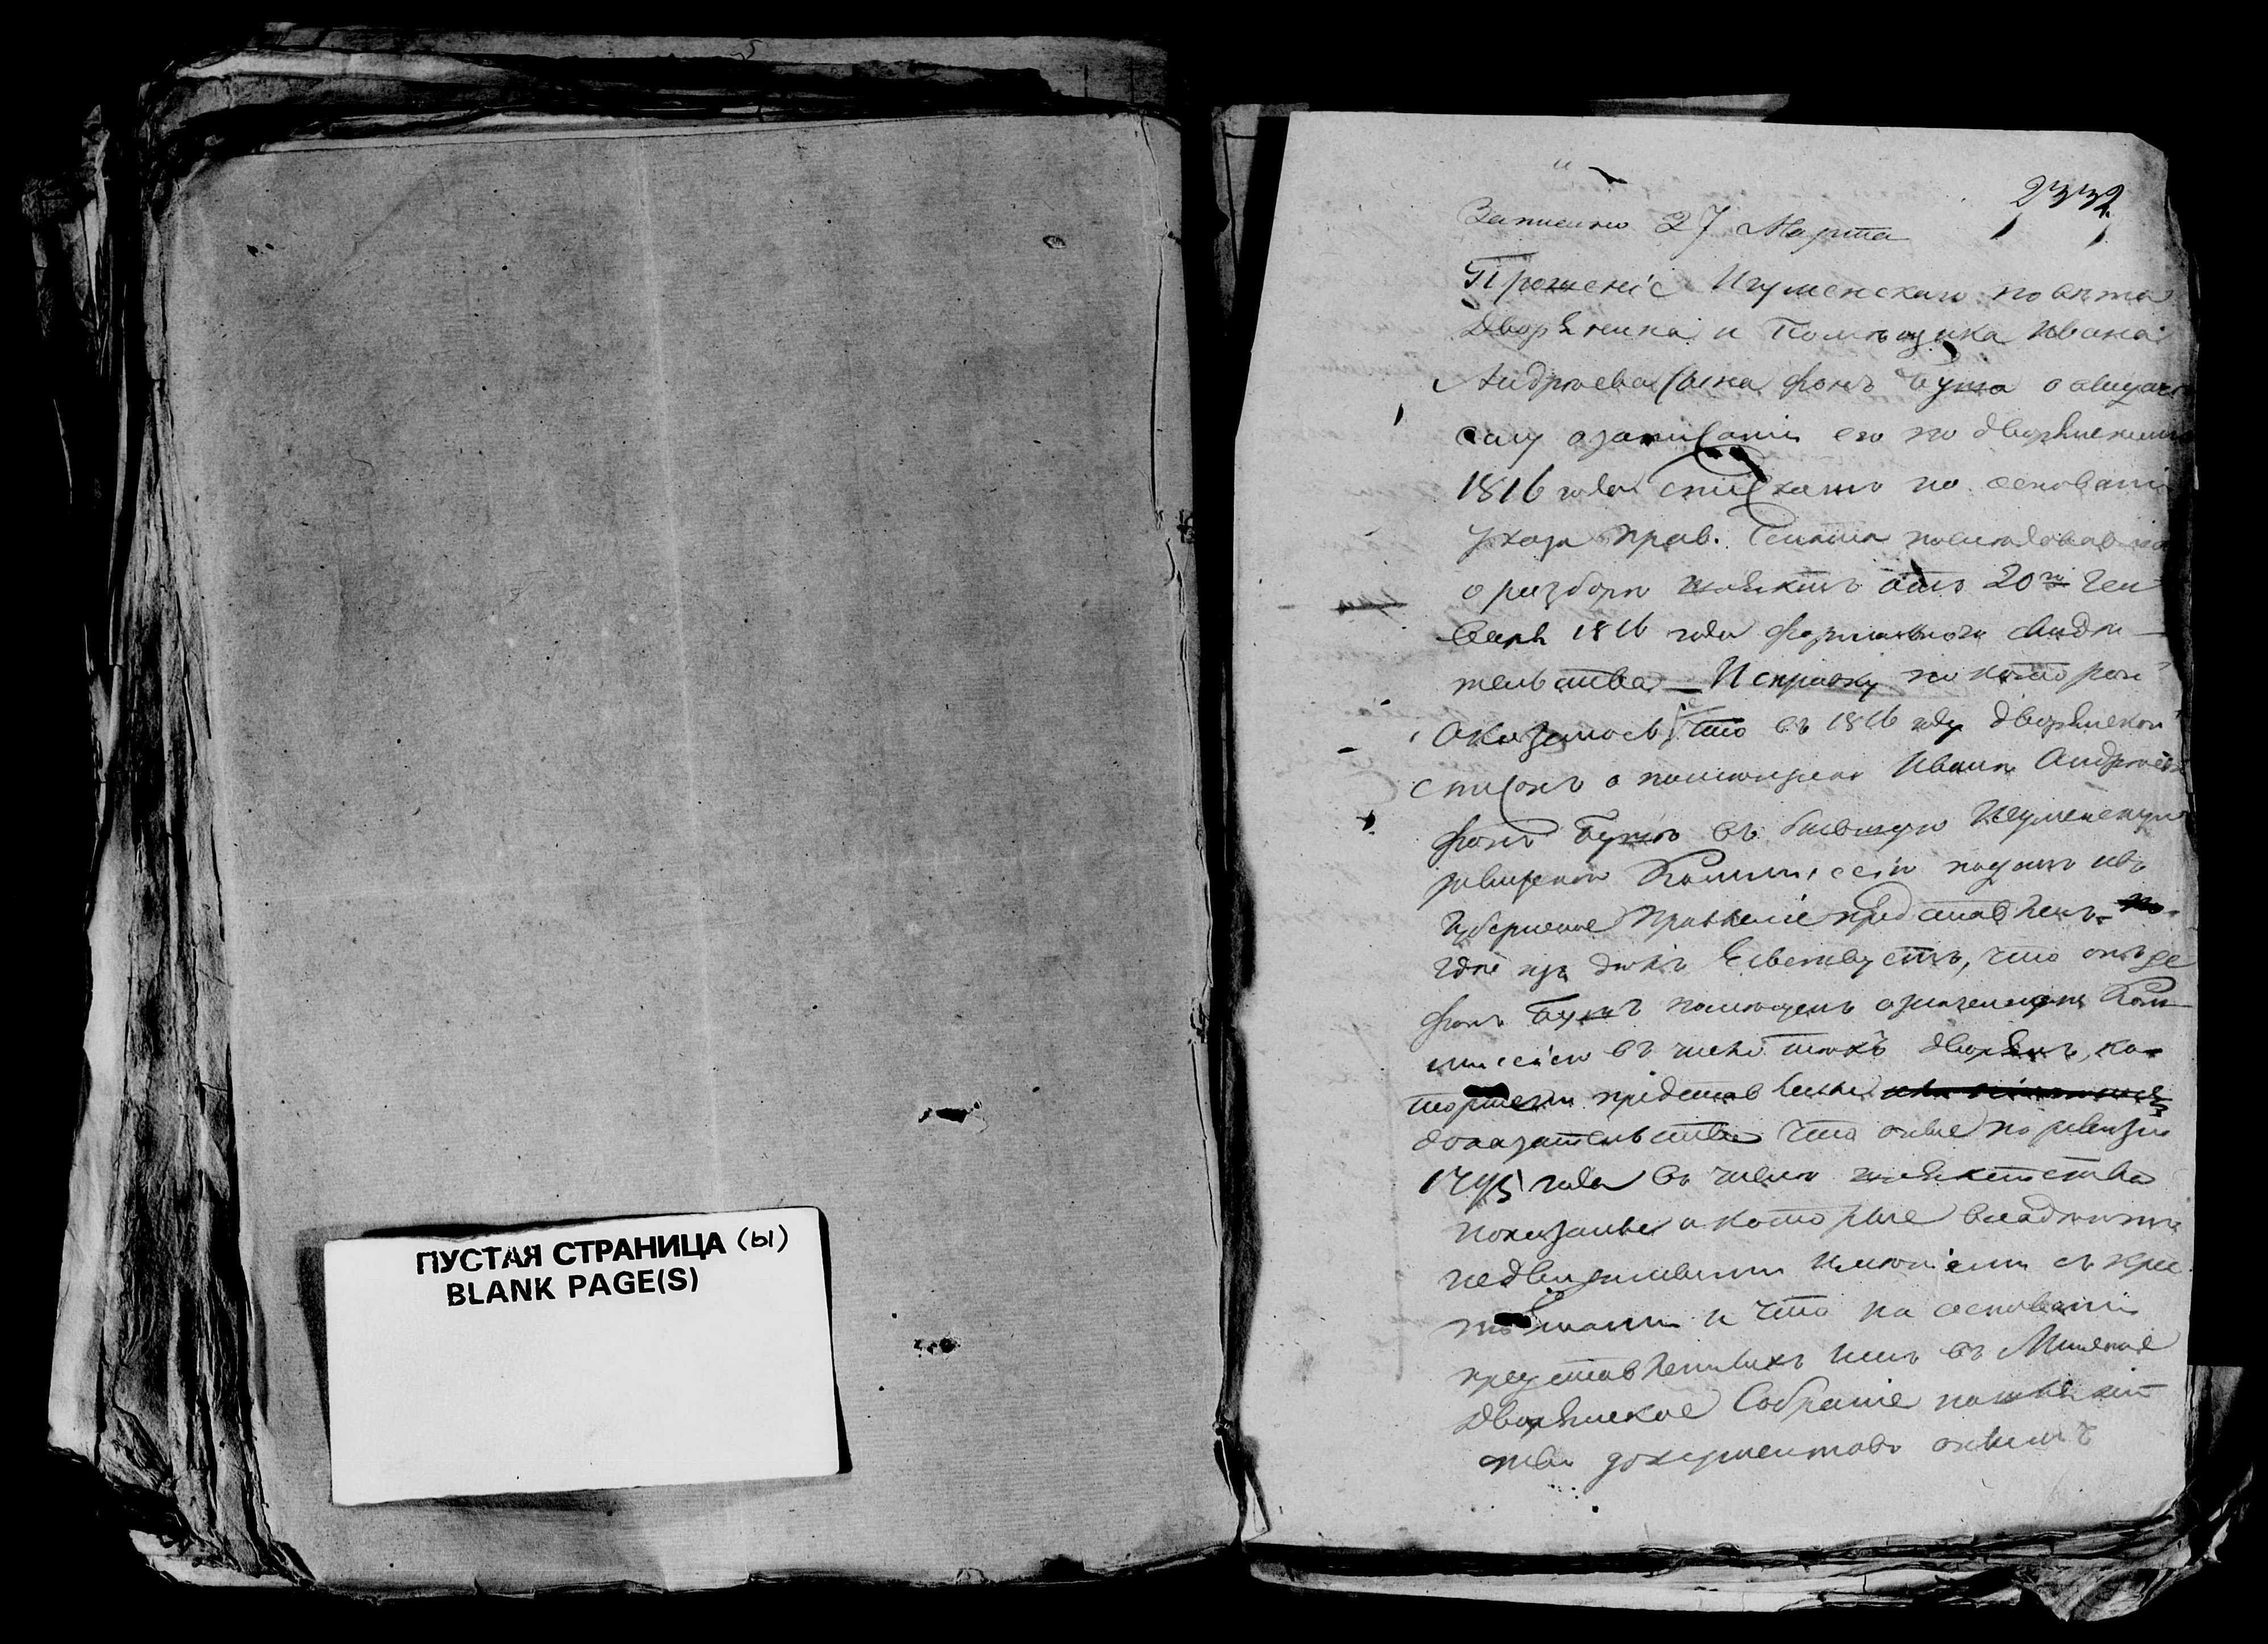 ПУСТАЯ СТРАНИЦА (ы)
BLANK PAGE(S)
2332
Записано 27 Марта
Прошеніе Игуменскаго повѣта
Дворянина и Помѣщика Ивана
Андрѣева Сына фонъ о выдаче
ему о записаніи его по дворянскимъ
1816 года спискамъ по основаніи
Указа Прав. Сената
о разборѣ шляхты отъ 20го Ген
варя 1816 года формальнаго свидѣ
тельства — И справку по которой
Оказалось что въ 1816 году дворянской
списокъ о помещике Иване Андрѣевѣ
фонъ въ бывшую Игуменскую
ревизскою Коммиссію поданъ изъ
Губернское Правленіе представленъ
гдѣ изъ дѣлъ Явствуетъ, что онъ де
фонъ помещенъ означенною Ком
миссіею въ числе такихъ дворянъ, ко
торыми представлены
доказательства что оные по ревизіи
1795 года въ числе шляхетства
показаны и которые владѣютъ
недвижимыми имѣніями съ кре
стьянами и что на основаніи
представленныхъ имъ въ Минское
Дворянское Собраніе
документовъ онымъ